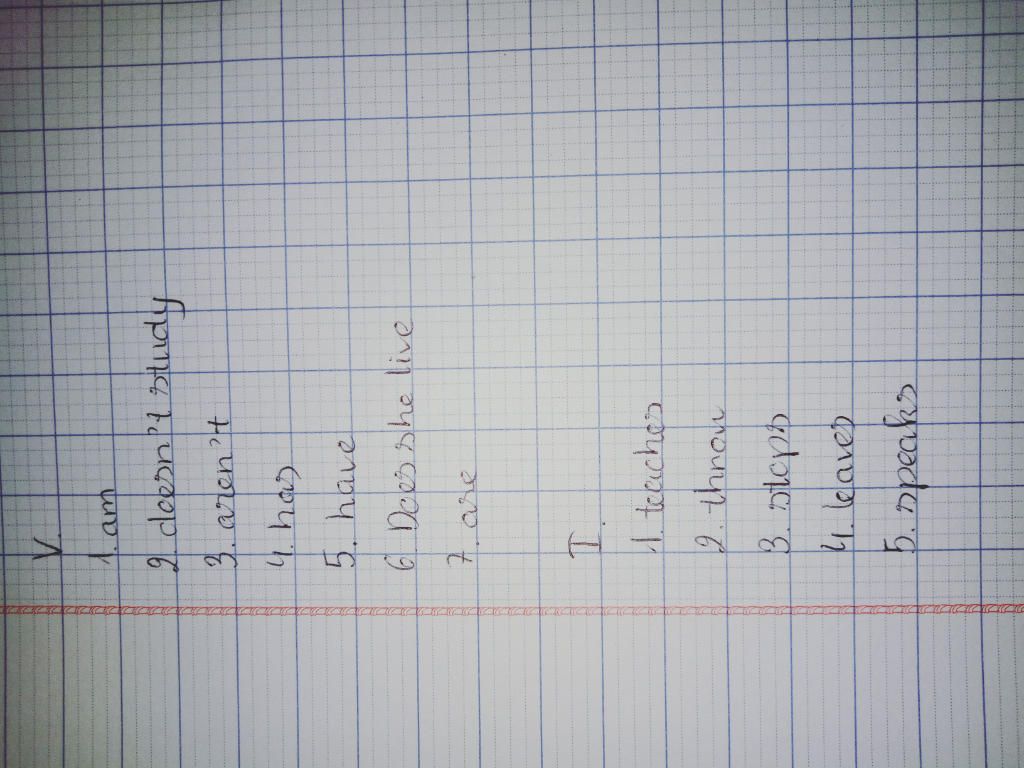 V.
1. am
2. doesn't study
3. aren't
4. has
5. have
6. Does she live
7. are
I.
1. teaches
2. throw
3. stops
4. leaves
5. speaks